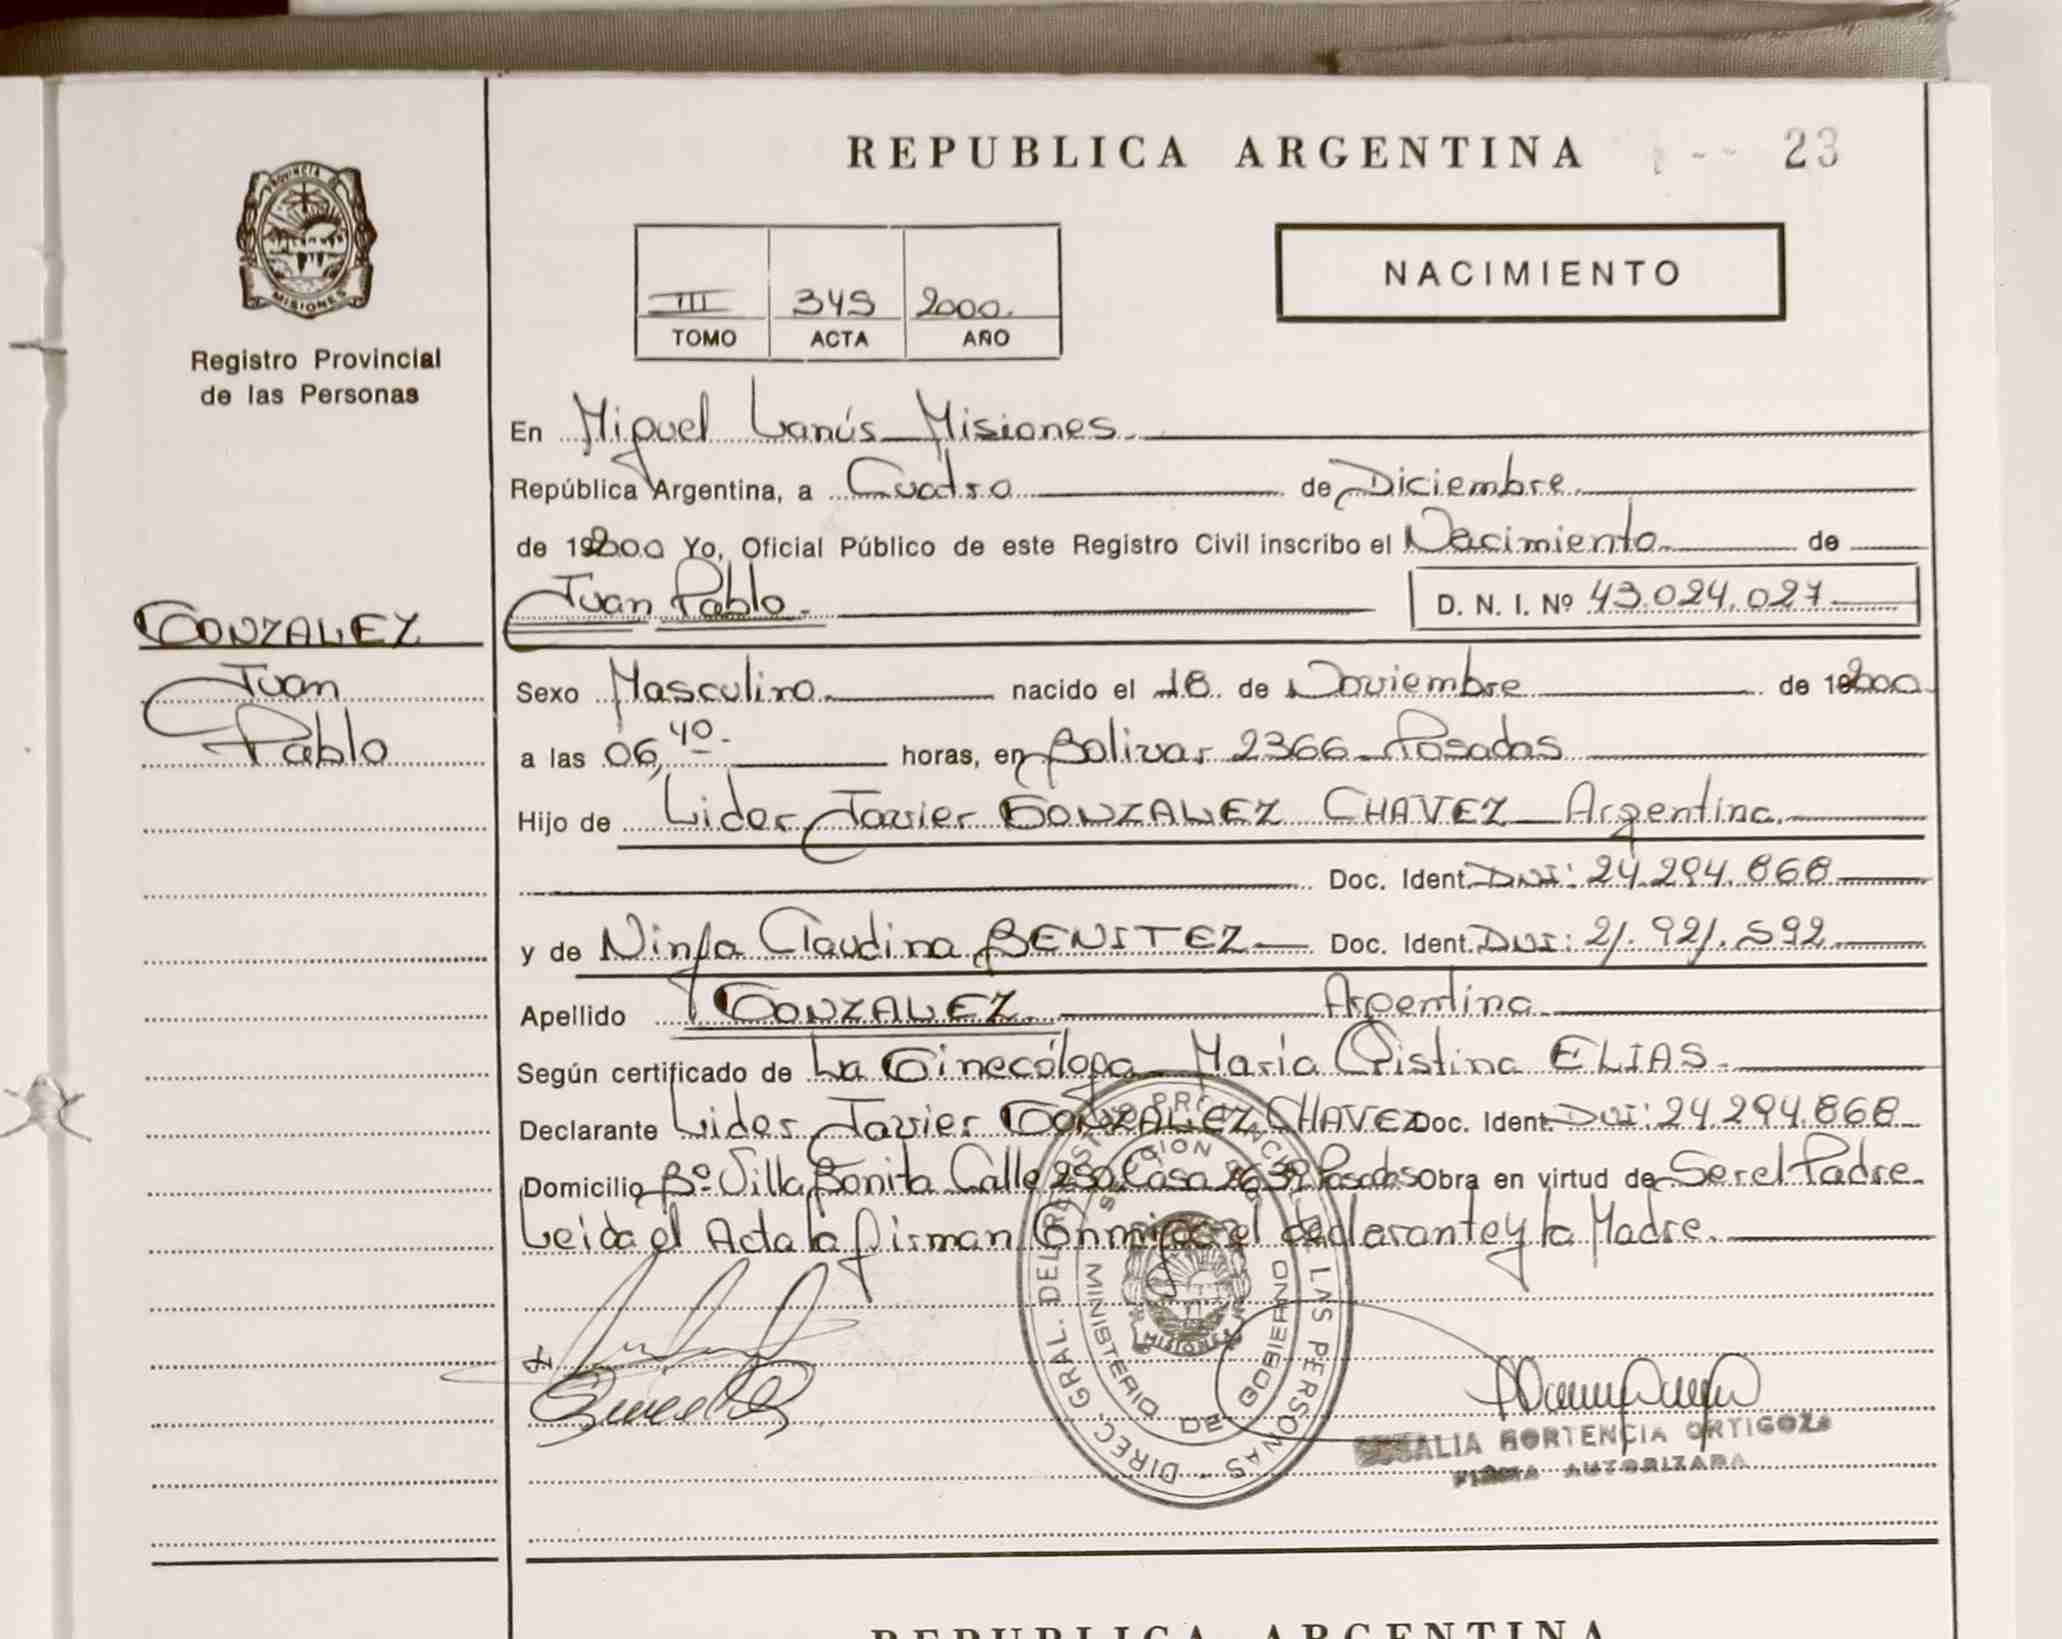 REPUBLICA ARGENTINA 23
PROVINCIA DE
MISIONES
Registro Provincial
de las Personas
III 345 2000.
TOMO ACTA AÑO
NACIMIENTO
En Miguel Lanús Misiones.
República Argentina, a Cuatro de Diciembre.
de 192000 Yo, Oficial Público de este Registro Civil inscribo el Nacimiento de
Juan Pablo. D. N. I. Nº 43.024.027
GONZALEZ
Juan
Pablo
Sexo Masculino nacido el 18 de Noviembre de 192000
a las 06,40 horas, en Bolivar 2366 Posadas
Hijo de Lider Javier GONZALEZ CHAVEZ Argentina.
Doc. Ident. DNI: 24.294.868
y de Ninfa Claudina BENITEZ Doc. Ident. DNI: 21.921.592
Apellido GONZALEZ. Argentina
Según certificado de La Ginecóloga María Cristina ELIAS.
Declarante Lider Javier GONZALEZ CHAVEZ Doc. Ident. DNI: 24.294.868
Domicilio Bº Villa Bonita Calle 250 Casa 2639 Posadas Obra en virtud de Ser el Padre.
Leida el Acta la firman Conmigo el declarante y la Madre.
DIREC. GRAL. DEL REGISTRO PROVINCIAL DE LAS PERSONAS
MINISTERIO DE GOBIERNO
MISIONES
HORTENCIA ORTIGOZA
FIRMA AUTORIZADA
REPUBLICA ARGENTINA